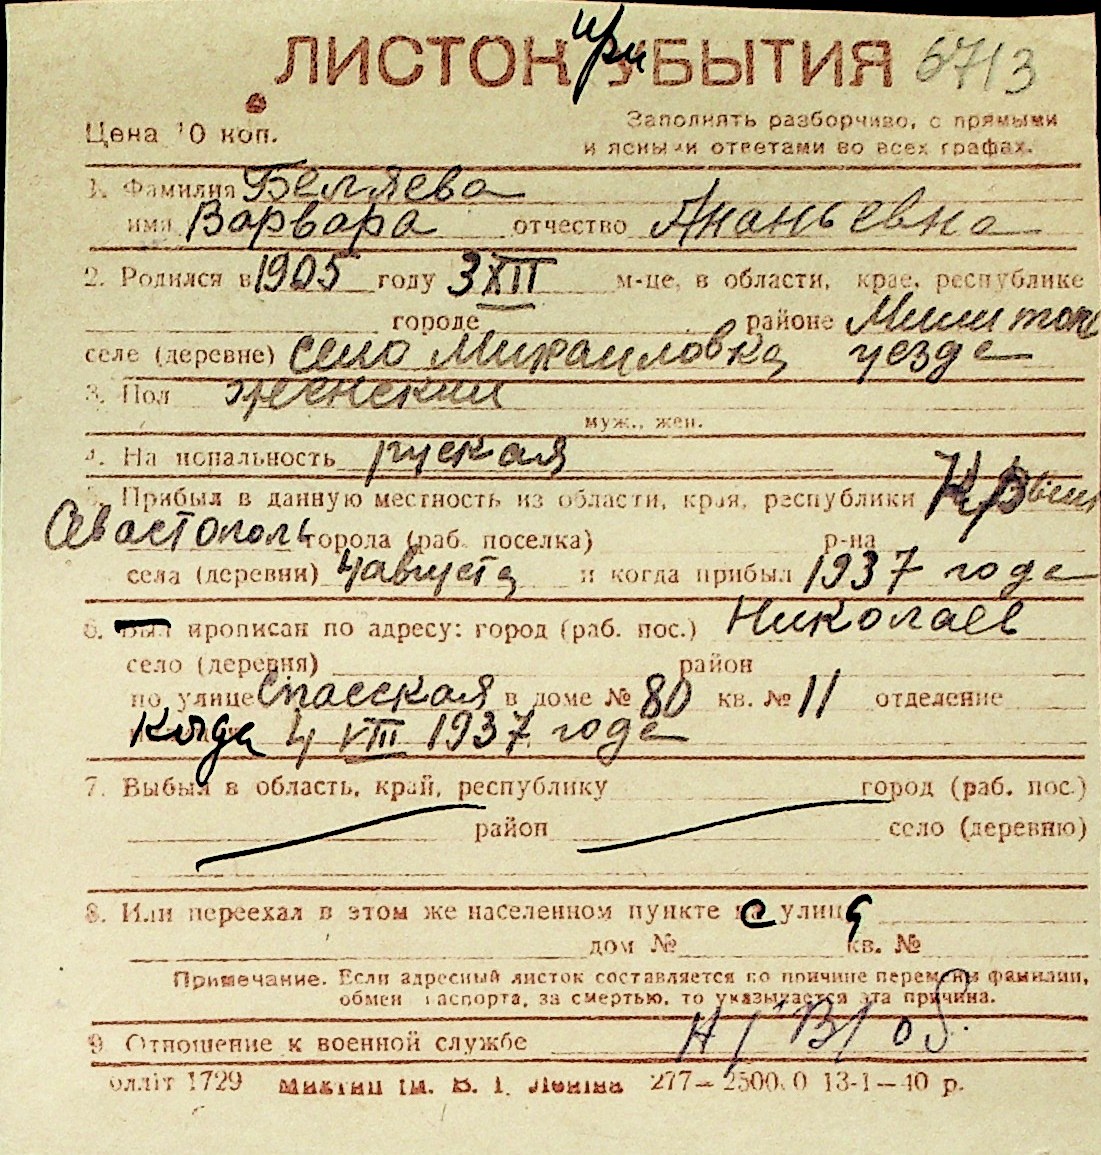 ЛИСТОК при УБЫТИЯ 6713
Цена 10 коп. Заполнять разборчиво, с прямыми
и ясными ответами во всех графах.
1. Фамилия Беляева
имя Варвара отчество Ананьевна
2. Родился в 1905 году 3 XII м-це, в области, крае, республике
городе районе
селе (деревне) село Михаиловка уезде
3. Пол женский
муж., жен.
4. Национальность руская
5. Прибыл в данную местность из области, края, республики Крым
Севастополь города (раб. поселка) р-на
села (деревни) 4 августа и когда прибыл 1937 года
6. Был прописан по адресу: город (раб. пос.) Николаев
село (деревня) район
по улице Спасская в доме № 80 кв. № 11 отделение
Когда 4 VIII 1937 года
7. Выбыл в область, край, республику город (раб. пос.)
район село (деревню)
8. Или переехал в этом же населенном пункте с улиц
дом № кв. №
Примечание. Если адресный листок составляется по причине перемены фамилии,
обмен паспорта, за смертью, то указывается эта причина.
9. Отношение к военной службе Н/В/об.
олліт 1729 ім. В. І. Леніна 277—2500.0 13-1—40 р.